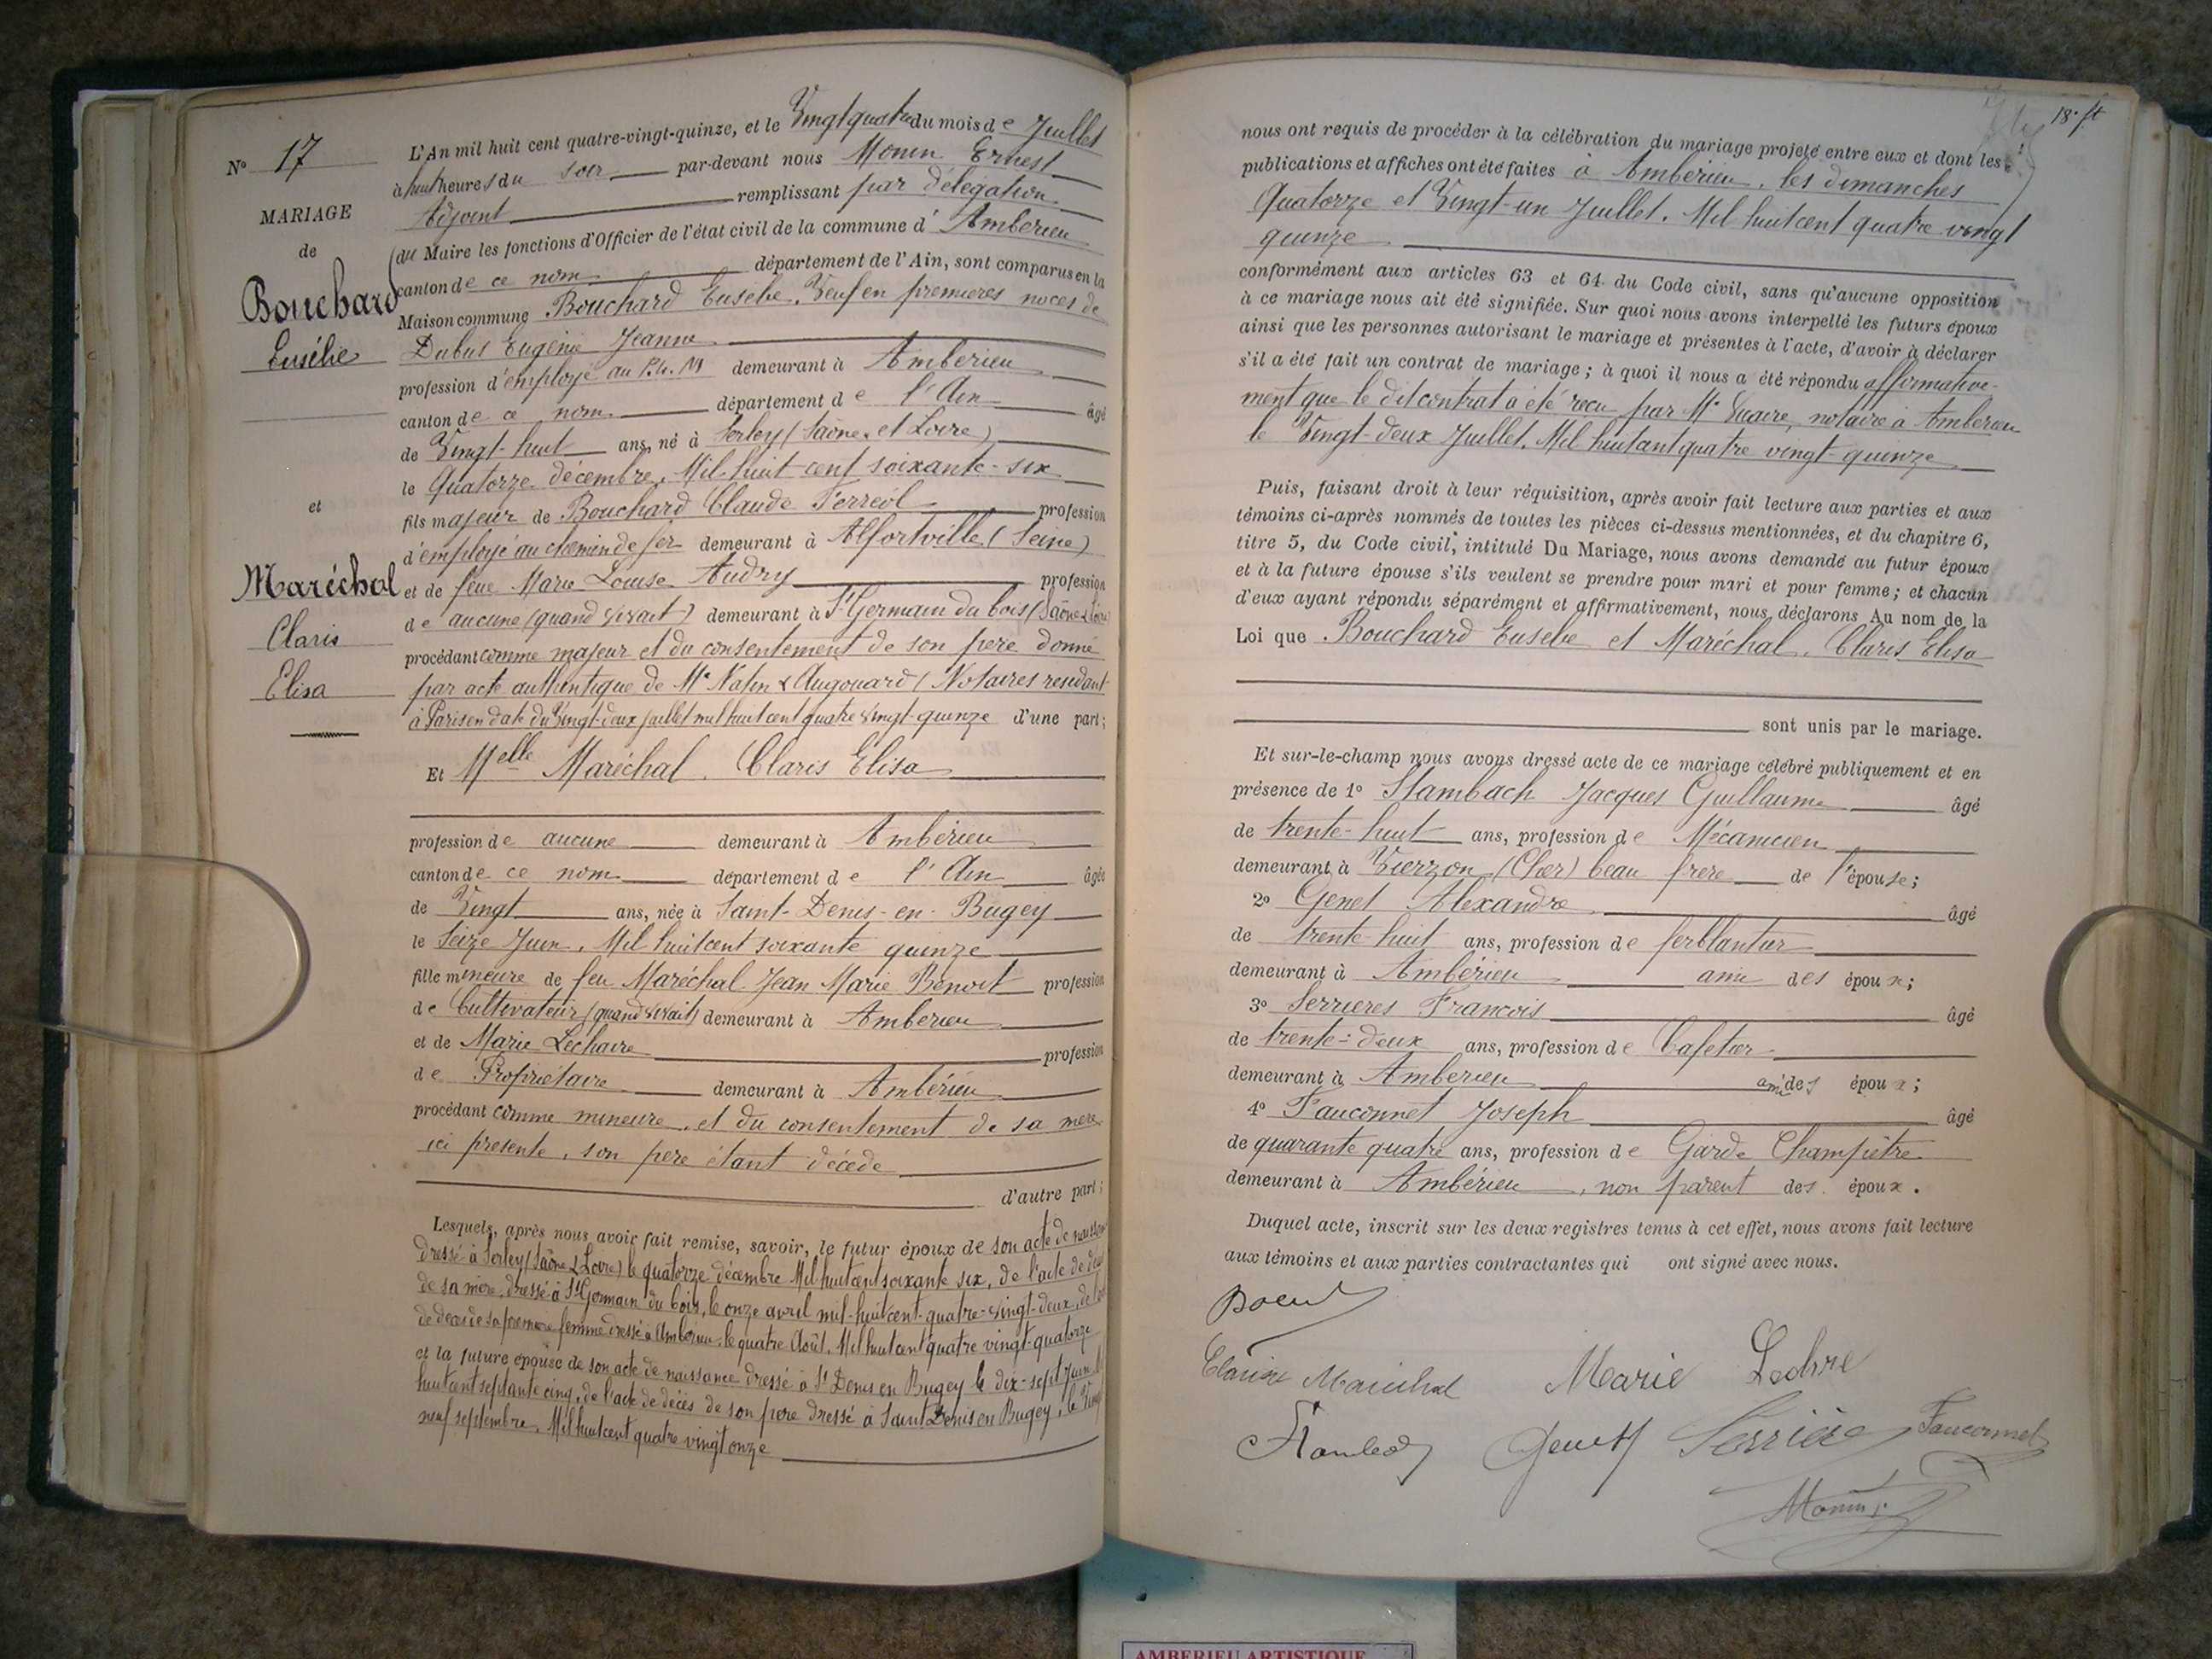 N° 17
MARIAGE
de
Bouchard
Eusébe
et
Maréchal
Claris
Elisa
L'An mil huit cent quatre-vingt-quinze, et le Vingt quatre du mois de Juillet
à huit heures du soir par-devant nous Monin Ernest
Adjoint remplissant par délégation
du Maire les fonctions d'Officier de l'état civil de la commune d' Ambérieu
canton de ce nom département de l'Ain, sont comparus en la
Maison commune Bouchard Eusébe, Veuf en premieres noces de
Dubus Eugénie Jeanne
profession d'employé au P.L.M demeurant à Ambérieu
canton de ce nom département de l'Ain âgé
de Vingt-huit ans, né à Serley (Saône et Loire)
le Quatorze décembre, Mil-huit cent soixante-six
fils majeur de Bouchard Claude Ferréol profession
d'employé au chemin de fer demeurant à Alfortville (Seine)
et de feue Marie Louise Audry profession
de aucune (quand vivait) demeurant à St Germain du bois (Saône & Loire)
procédant comme majeur et du consentement de son père donné
par acte authentique de Me & Augouard (Notaires résidant
à Paris en date du Vingt-deux juillet mil huit cent quatre vingt-quinze d'une part;
Et Melle Maréchal, Claris Elisa
profession de aucune demeurant à Ambérieu
canton de ce nom département de l'Ain âgée
de Vingt ans, née à Saint-Denis-en-Bugey
le Seize Juin, Mil huit cent soixante quinze
fille mineure de feu Maréchal Jean Marie Benoit profession
de Cultivateur (quand vivait) demeurant à Ambérieu
et de Marie Léchaire profession
de Propriétaire demeurant à Ambérieu
procédant comme mineure, et du consentement de sa mere
ici presente, son pere étant décédé
d'autre part;
Lesquels, après nous avoir fait remise, savoir, le futur époux de son acte de naissance
dressé à Serley (Saône & Loire) le quatorze décembre Mil huit cent soixante six, de l'acte de décès
de sa mère, dressé à St Germain du bois, le onze avril mil-huit cent-quatre-vingt-deux, de l'acte
de décès de sa premiere femme dressé à Ambérieu, le quatre Août, Mil huit cent quatre vingt-quatorze
et la future épouse de son acte de naissance dressé à St Denis en Bugey le dix-sept Juin Mil
huit cent septante cinq, de l'acte de décès de son pere dressé à Saint Denis en Bugey, le Vingt
neuf septembre, Mil huit cent quatre vingt onze
18. ft
nous ont requis de procéder à la célébration du mariage projeté entre eux et dont les
publications et affiches ont été faites à Ambérieu, les dimanches
Quatorze et Vingt-un Juillet, Mil huit cent quatre vingt
quinze
conformément aux articles 63 et 64 du Code civil, sans qu'aucune opposition
à ce mariage nous ait été signifiée. Sur quoi nous avons interpellé les futurs époux
ainsi que les personnes autorisant le mariage et présentes à l'acte, d'avoir à déclarer
s'il a été fait un contrat de mariage; à quoi il nous a été répondu affirmative-
ment que le dit contrat a été reçu par Me notaire à Ambérieu
le Vingt-deux Juillet, Mil huit cent quatre vingt quinze
Puis, faisant droit à leur réquisition, après avoir fait lecture aux parties et aux
témoins ci-après nommés de toutes les pièces ci-dessus mentionnées, et du chapitre 6,
titre 5, du Code civil, intitulé Du Mariage, nous avons demandé au futur époux
et à la future épouse s'ils veulent se prendre pour mari et pour femme; et chacun
d'eux ayant répondu séparément et affirmativement, nous déclarons Au nom de la
Loi que Bouchard Eusebe et Maréchal, Claris Elisa
sont unis par le mariage.
Et sur-le-champ nous avons dressé acte de ce mariage célébré publiquement et en
présence de 1° Stambach Jacques Guillaume âgé
de trente-huit ans, profession de Mécanicien
demeurant à Vierzon (Cher) beau frere de l'épouse;
2° Genet Alexandre âgé
de trente huit ans, profession de ferblantier
demeurant à Ambérieu ami des époux;
3° Serrieres François âgé
de trente-deux ans, profession de Cafetier
demeurant à Ambérieu ami des époux;
4° Fauconnet Joseph âgé
de quarante quatre ans, profession de Garde Champêtre
demeurant à Ambérieu, non parent des époux.
Duquel acte, inscrit sur les deux registres tenus à cet effet, nous avons fait lecture
aux témoins et aux parties contractantes qui ont signé avec nous.
Marechal Marie
Genet Serrière Fauconnet
Monin
AMBERIEU ARTISTIQUE